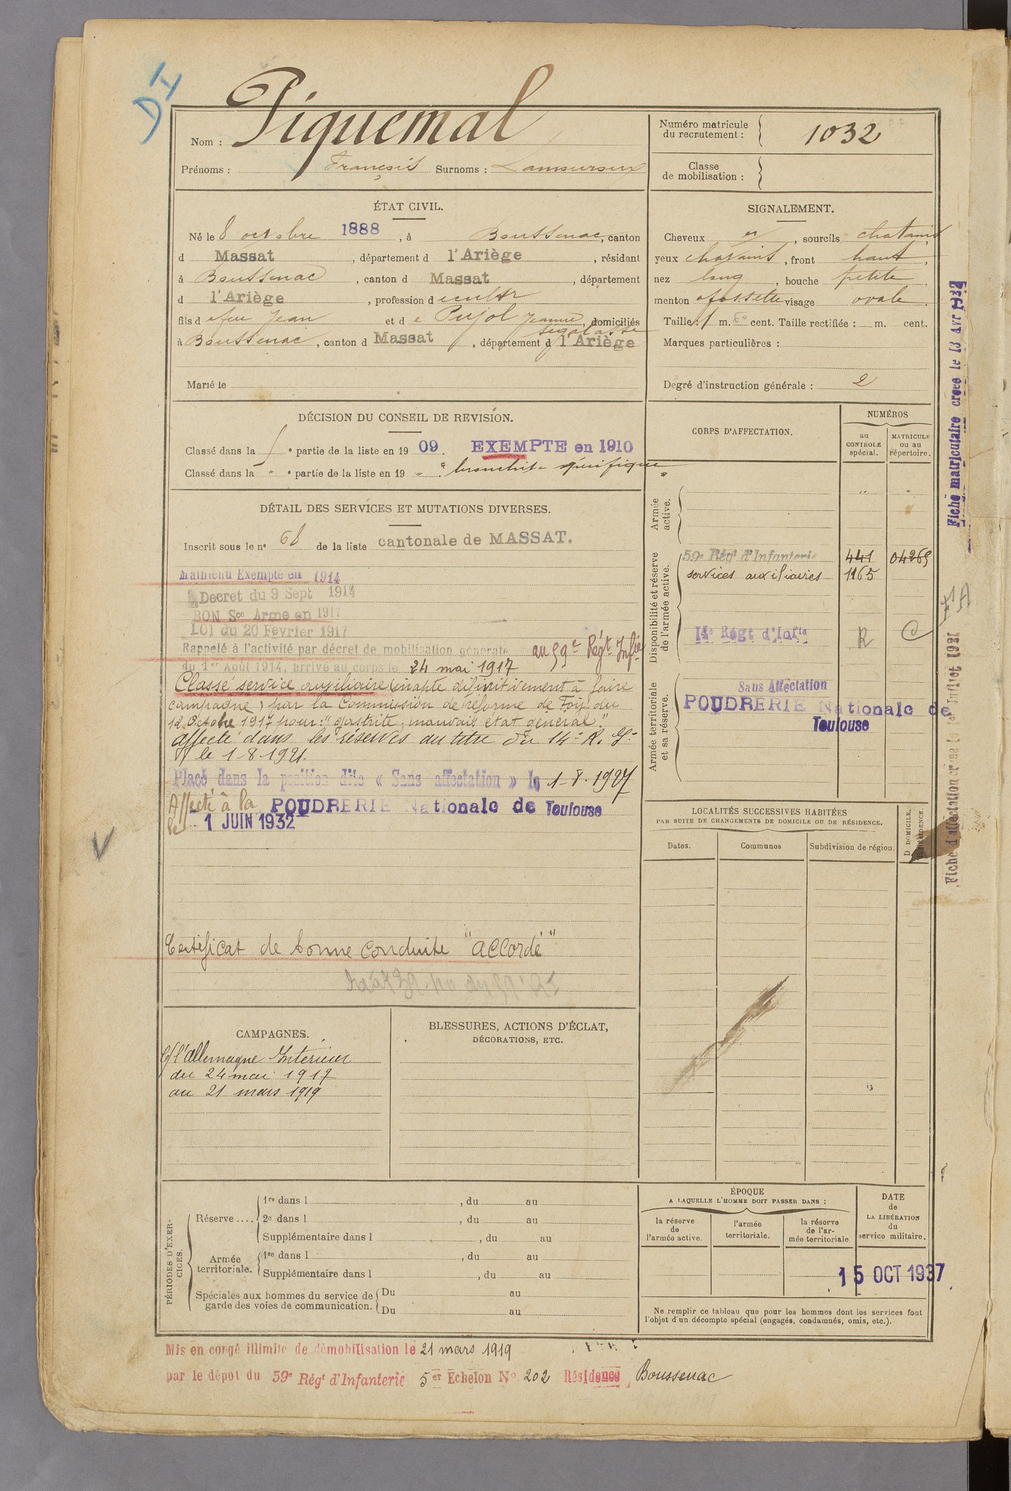 DI
Nom : Piquemal
Prénoms : François Surnoms :
Numéro matricule du recrutement : 1032
Classe de mobilisation :
ÉTAT CIVIL.
Né le 8 octobre 1888, à Boussenac, canton
d Massat, département d l'Ariège, résidant
à Boussenac, canton d Massat, département
d l'Ariège, profession d cultr
fils d e feu Jean et d e Pujol Jeanne, domiciliés
à Boussenac, canton d Massat, département d l'Ariège
Marié le
SIGNALEMENT.
Cheveux et, sourcils chatains
yeux chatains, front haut,
nez long, bouche petite
menton à fossette visage ovale.
Taille : 1 m. 60 cent. Taille rectifiée : m. cent.
Marques particulières :
Degré d'instruction générale : 2
DÉCISION DU CONSEIL DE REVISION.
Classé dans la e partie de la liste en 19 09. EXEMPTE en 1910
Classé dans la " e partie de la liste en 19 " . "bronchite spécifique"
DÉTAIL DES SERVICES ET MUTATIONS DIVERSES.
Inscrit sous le no 68 de la liste cantonale de MASSAT.
Maintenu Exempté en 1914
Decret du 9 Sept 1914
BON Sce Armé en 1917
LOI du 20 Février 1917
Rappelé à l'activité par décret de mobilisation générale au 59e Régt Infie
du 1er Août 1914, arrivé au corps le 24 mai 1917
Classé service auxiliaire (inapte définitivement à faire
campagne) par la Commission de réforme de Foix du
12 Octobre 1917 pour : "gastrite, mauvais état général."
affecté dans les réserves au titre du 14e R. Gie
le 1-8-1921.
Placé dans la position dite « Sans affectation » le 1-8-1927
Affecté à la POUDRERIE Nationale de Toulouse
le 1 JUIN 1932
Certificat de bonne conduite "accordé"
CORPS D'AFFECTATION.
NUMÉROS
au CONTROLE spécial.
MATRICULE ou au répertoire.
Armée active.
Disponibilité et réserve de l'armée active.
59e Régt d'Infanterie 441 04269
services auxiliaires 1165
14e Régt d'Infie R C
Armée territoriale et sa réserve.
Sans Affectation
POUDRERIE Nationale de
Toulouse
LOCALITÉS SUCCESSIVES HABITÉES
PAR SUITE DE CHANGEMENTS DE DOMICILE OU DE RÉSIDENCE.
Dates.
Communes
Subdivision de région.
D. DOMICILE.
RÉSIDENCE.
CAMPAGNES.
C/ l'Allemagne Intérieur
du 24 mai 1917
au 21 mars 1919
BLESSURES, ACTIONS D'ÉCLAT,
DÉCORATIONS, ETC.
PÉRIODES D'EXERCICES.
Réserve....
1re dans l , du au
2e dans l , du au
Supplémentaire dans l , du au
Armée territoriale.
1re dans l , du au
Supplémentaire dans l , du au
Spéciales aux hommes du service de garde des voies de communication.
Du au
Du au
ÉPOQUE
A LAQUELLE L'HOMME DOIT PASSER DANS :
la réserve de l'armée active.
l'armée territoriale.
la réserve de l'armée territoriale
DATE de LA LIBÉRATION du service militaire.
15 OCT 1937
Ne remplir ce tableau que pour les hommes dont les services font
l'objet d'un décompte spécial (engagés, condamnés, omis, etc.).
Mis en congé illimité de démobilisation le 21 mars 1919
par le dépot du 59e Régt d'Infanterie 5er Echelon No 202 Résidence Boussenac
Fiche matriculaire créée le 13 AVR 1932
Fiche d'affectation créée le 1er Juillet 1921